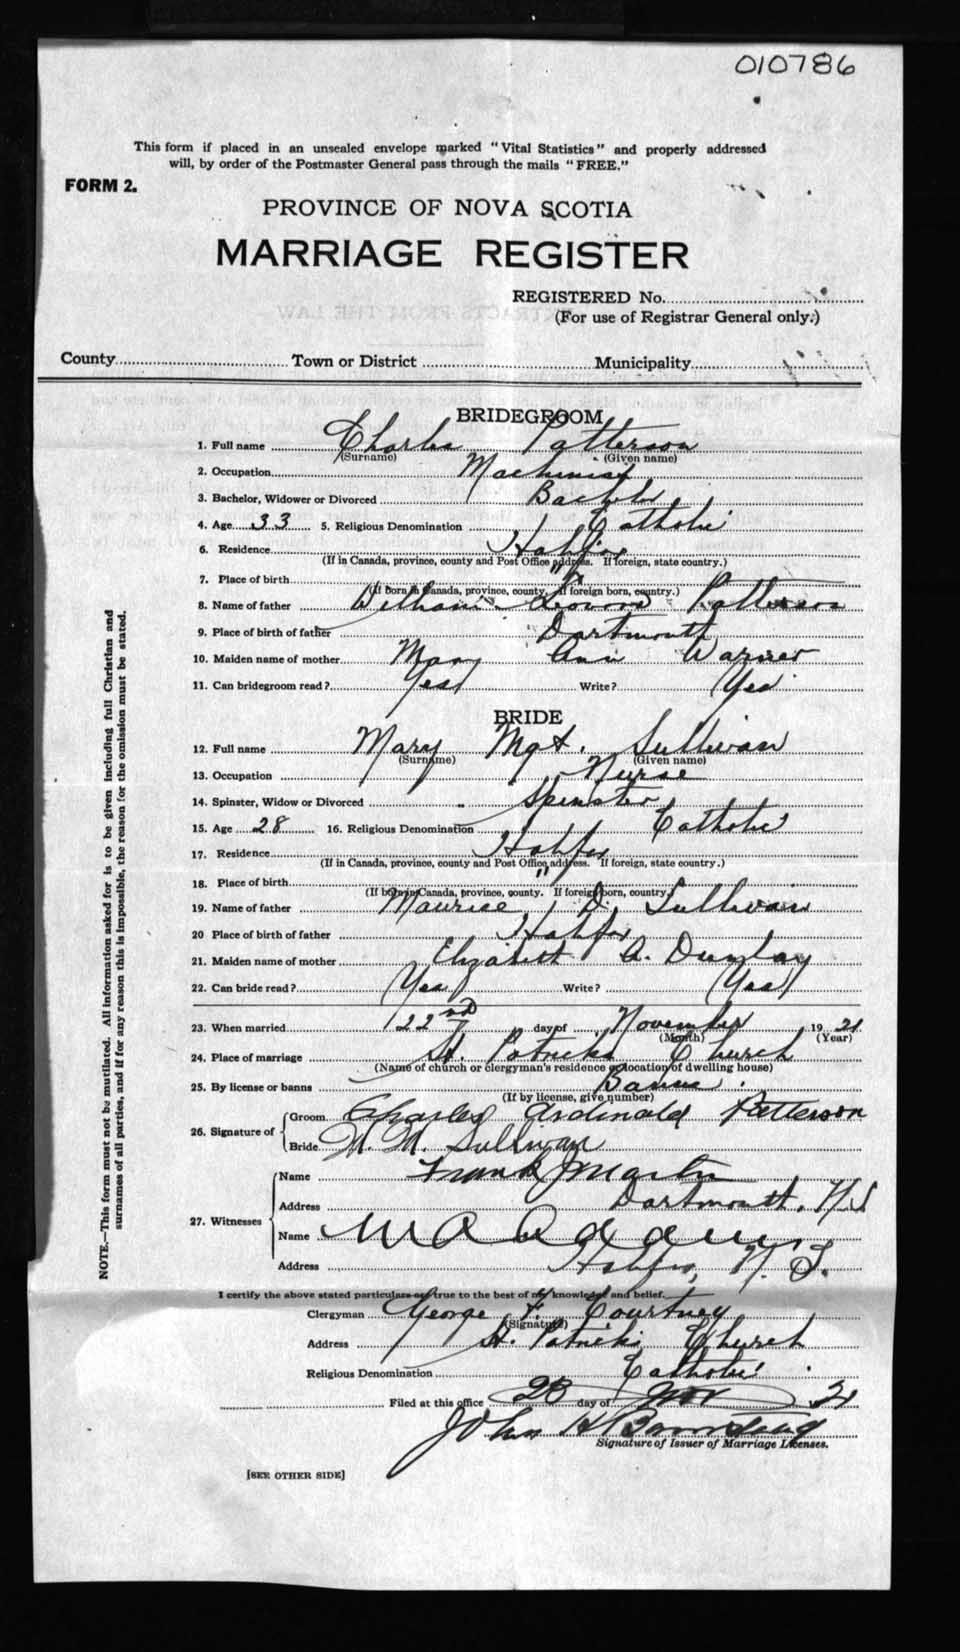 010786
This form if placed in an unsealed envelope marked "Vital Statistics" and properly addressed
will, by order of the Postmaster General pass through the mails "FREE."
FORM 2.
PROVINCE OF NOVA SCOTIA
MARRIAGE REGISTER
REGISTERED No.
(For use of Registrar General only.)
County Town or District Municipality
BRIDEGROOM
1. Full name Charles Patterson
(Surname) (Given name)
2. Occupation Machinist
3. Bachelor, Widower or Divorced Bachelor
4. Age 33 5. Religious Denomination Catholic
6. Residence Halifax
(If in Canada, province, county and Post Office address. If foreign, state country.)
7. Place of birth "
(If born in Canada, province, county. If foreign born, country.)
8. Name of father William Patterson
9. Place of birth of father Dartmouth
10. Maiden name of mother Mary Ann Warner
11. Can bridegroom read? Yes Write? Yes
BRIDE
12. Full name Mary Mgt. Sullivan
(Surname) (Given name)
13. Occupation Nurse
14. Spinster, Widow or Divorced Spinster
15. Age 28 16. Religious Denomination Catholic
17. Residence Halifax
(If in Canada, province, county and Post Office address. If foreign, state country.)
18. Place of birth "
(If born in Canada, province, county. If foreign born, country.)
19. Name of father Maurice D. Sullivan
20 Place of birth of father Halifax
21. Maiden name of mother Elizabeth A. Dunlay
22. Can bride read? Yes Write? Yes
23. When married 22nd day of November 1921
(Month) (Year)
24. Place of marriage St. Patricks Church
(Name of church or clergyman's residence or location of dwelling house)
25. By license or banns Banns
(If by license, give number)
26. Signature of Groom Charles Ardinald Patterson
Bride M. M. Sullivan
27. Witnesses Name Frank J Martin
Address Dartmouth, N.S
Name M A Addams
Address Halifax, N. S.
I certify the above stated particulars are true to the best of my knowledge and belief.
Clergyman George F. Courtney
(Signature)
Address St. Patricks Church
Religious Denomination Catholic
Filed at this office 28 day of Nov 21
John H
Signature of Issuer of Marriage Licenses.
[SEE OTHER SIDE]
NOTE.—This form must not be mutilated. All information asked for is to be given including full Christian and
surnames of all parties, and if for any reason this is impossible, the reason for the omission must be stated.